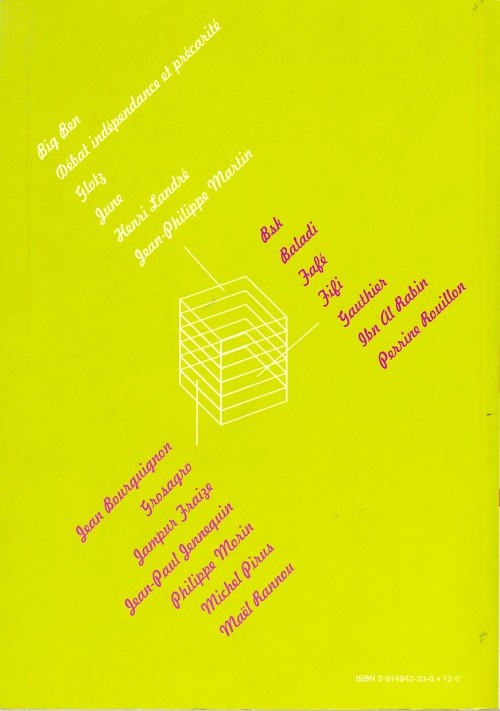 Big Ben
Débat indépendance et précarité
Glotz
June
Henri Landré
Jean-Philippe Martin
Bsk
Baladi
Fafé
Fifi
Gauthier
Ibn Al Rabin
Perrine Rouillon
Jean Bourguignon
Grosagro
Jampur Fraize
Jean-Paul Jennequin
Philippe Morin
Michel Pirus
Maël Rannou
ISBN 2-914942-33-0 • 12 €